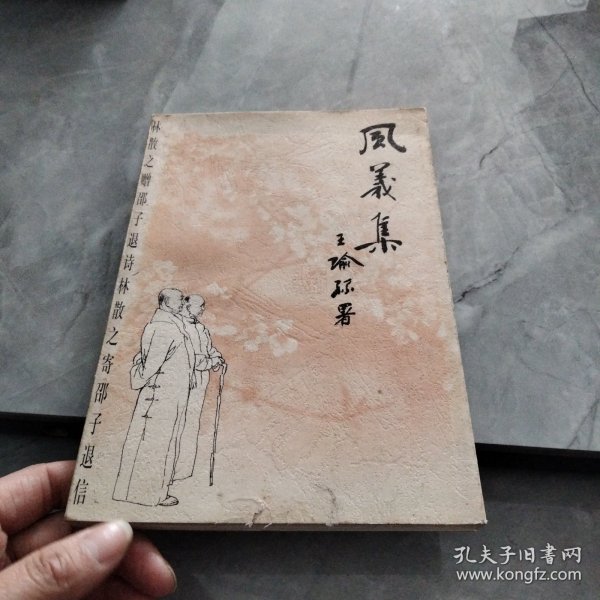 風義集
王瑜孫署
林散之赠邵子退诗/林散之寄邵子退信
孔夫子旧书网
www.kongfz.com